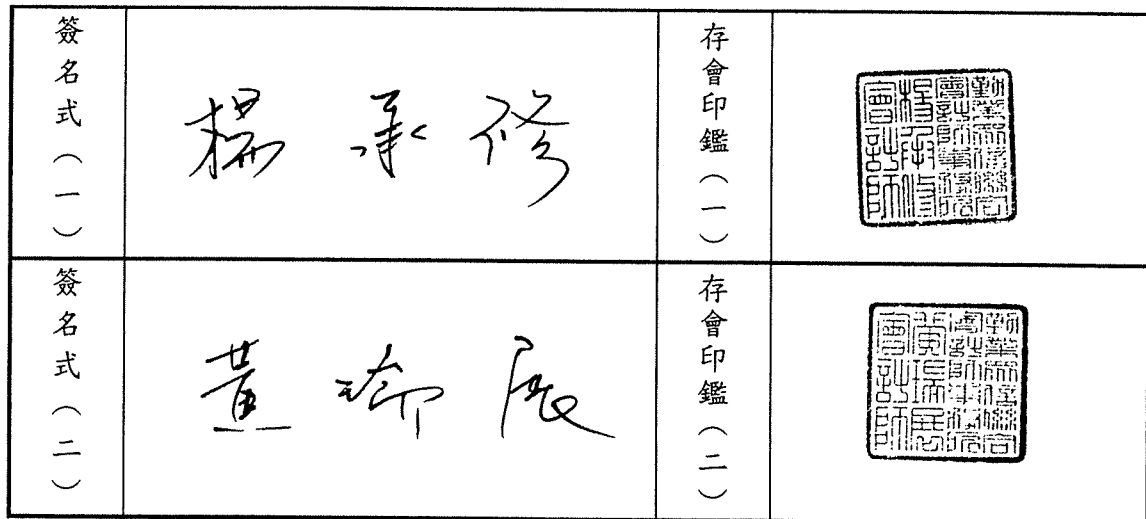 簽名式（一）
楊承修
存會印鑑（一）
勤業眾信聯合
會計師事務所
楊承修
會計師
簽名式（二）
黃瑞展
存會印鑑（二）
勤業眾信聯合
會計師事務所
黃瑞展
會計師